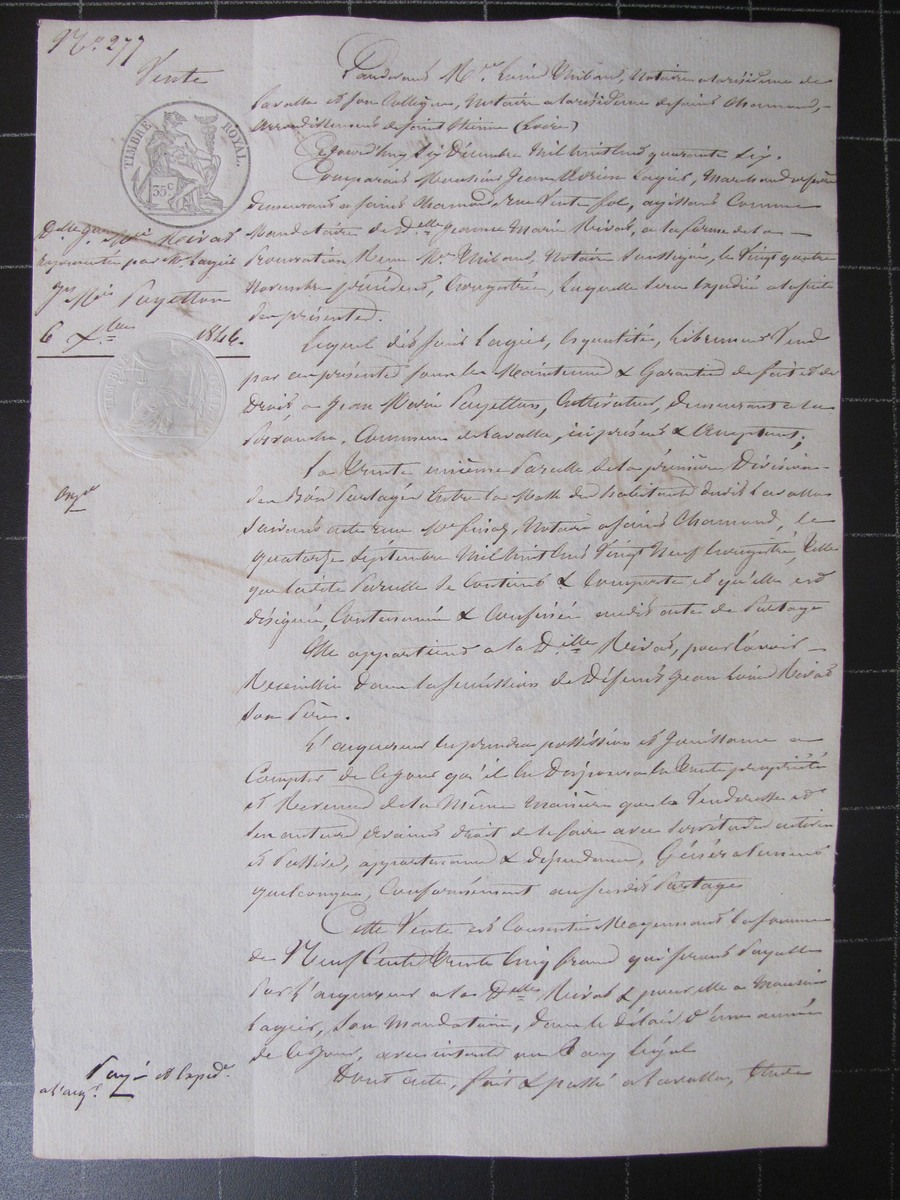 N.° 277
Vente
TIMBRE ROYAL.
35 c
D.elle J.ne M.ie Rivas
représentée par M. Lagier
Jn Mie Payetton
6 X.bre 1846.
Pardevant M.tre Louis Thibaud, Notaire a la résidence de
Lavalla et son Collègue, Notaire a la résidence de saint Chamond,
arrondissement de saint Etienne (Loire)
Cejourd'huy Six Décembre Mil huit cent quarante Six.
Comparait Monsieur Jean Lagier, Marchand
demeurant a saint Chamond, rue agissant Comme
Mandataire de D.elle Jeanne Marie Rivas, a la forme de la
Procuration Reçue M.e Thibaud, Notaire Soussigné, le Vingt quatre
Novembre précédent, Enregistrée, Laquelle sera expédiée a la suite
des présentes.
Lequel dit sieur Lagier, es qualités, librement Vend
par ces présentes sous la Maintenue & Garantie de fait et de
Droit, a Jean Marie Payetton, Cultivateur, Demeurant a la
Commune de Lavalla, ici présent & acceptant;
La Trente unième Parcelle de la première Division
des Bois Partagés Entre la Masse des habitants dudit Lavalla
Suivant acte reçu M.e Finaz, Notaire a saint Chamond, le
quatorze Septembre Mil huit cent Vingt Neuf Enregistré, Telle
que ladite Parcelle Se Contient & Comporte et qu'elle est
désignée, Contenancée & Confinée audit acte de Partage
Elle appartient a la D.elle Rivas, pour l'avoir
Recueillie dans la succession de Défunt Jean Louis Rivas
Son Père.
L'acquéreur En prendra possession et Jouissance a
Compter de Ce jour qu'il En Disposera En Toute propriété
et Revenus de la Même Manière que la Venderesse et
Ses auteurs avaient droit de le faire avec Servitudes actives
et Passives, appartenances & dépendances, Généralement
quelconques, Conformément au susdit Partage
Cette Vente est Consentie Moyennant la somme
de Neuf Cent Trente Cinq francs qui seront Payables
Par l'acquéreur a la D.elle Rivas & pour elle a Monsieur
Lagier, Son Mandataire, Dans le Délai d'une année
de Ce jour, avec intérêt au Taux légal
Dont acte, fait & passé a Lavalla,
Payé et Exped.
a l'acq.r